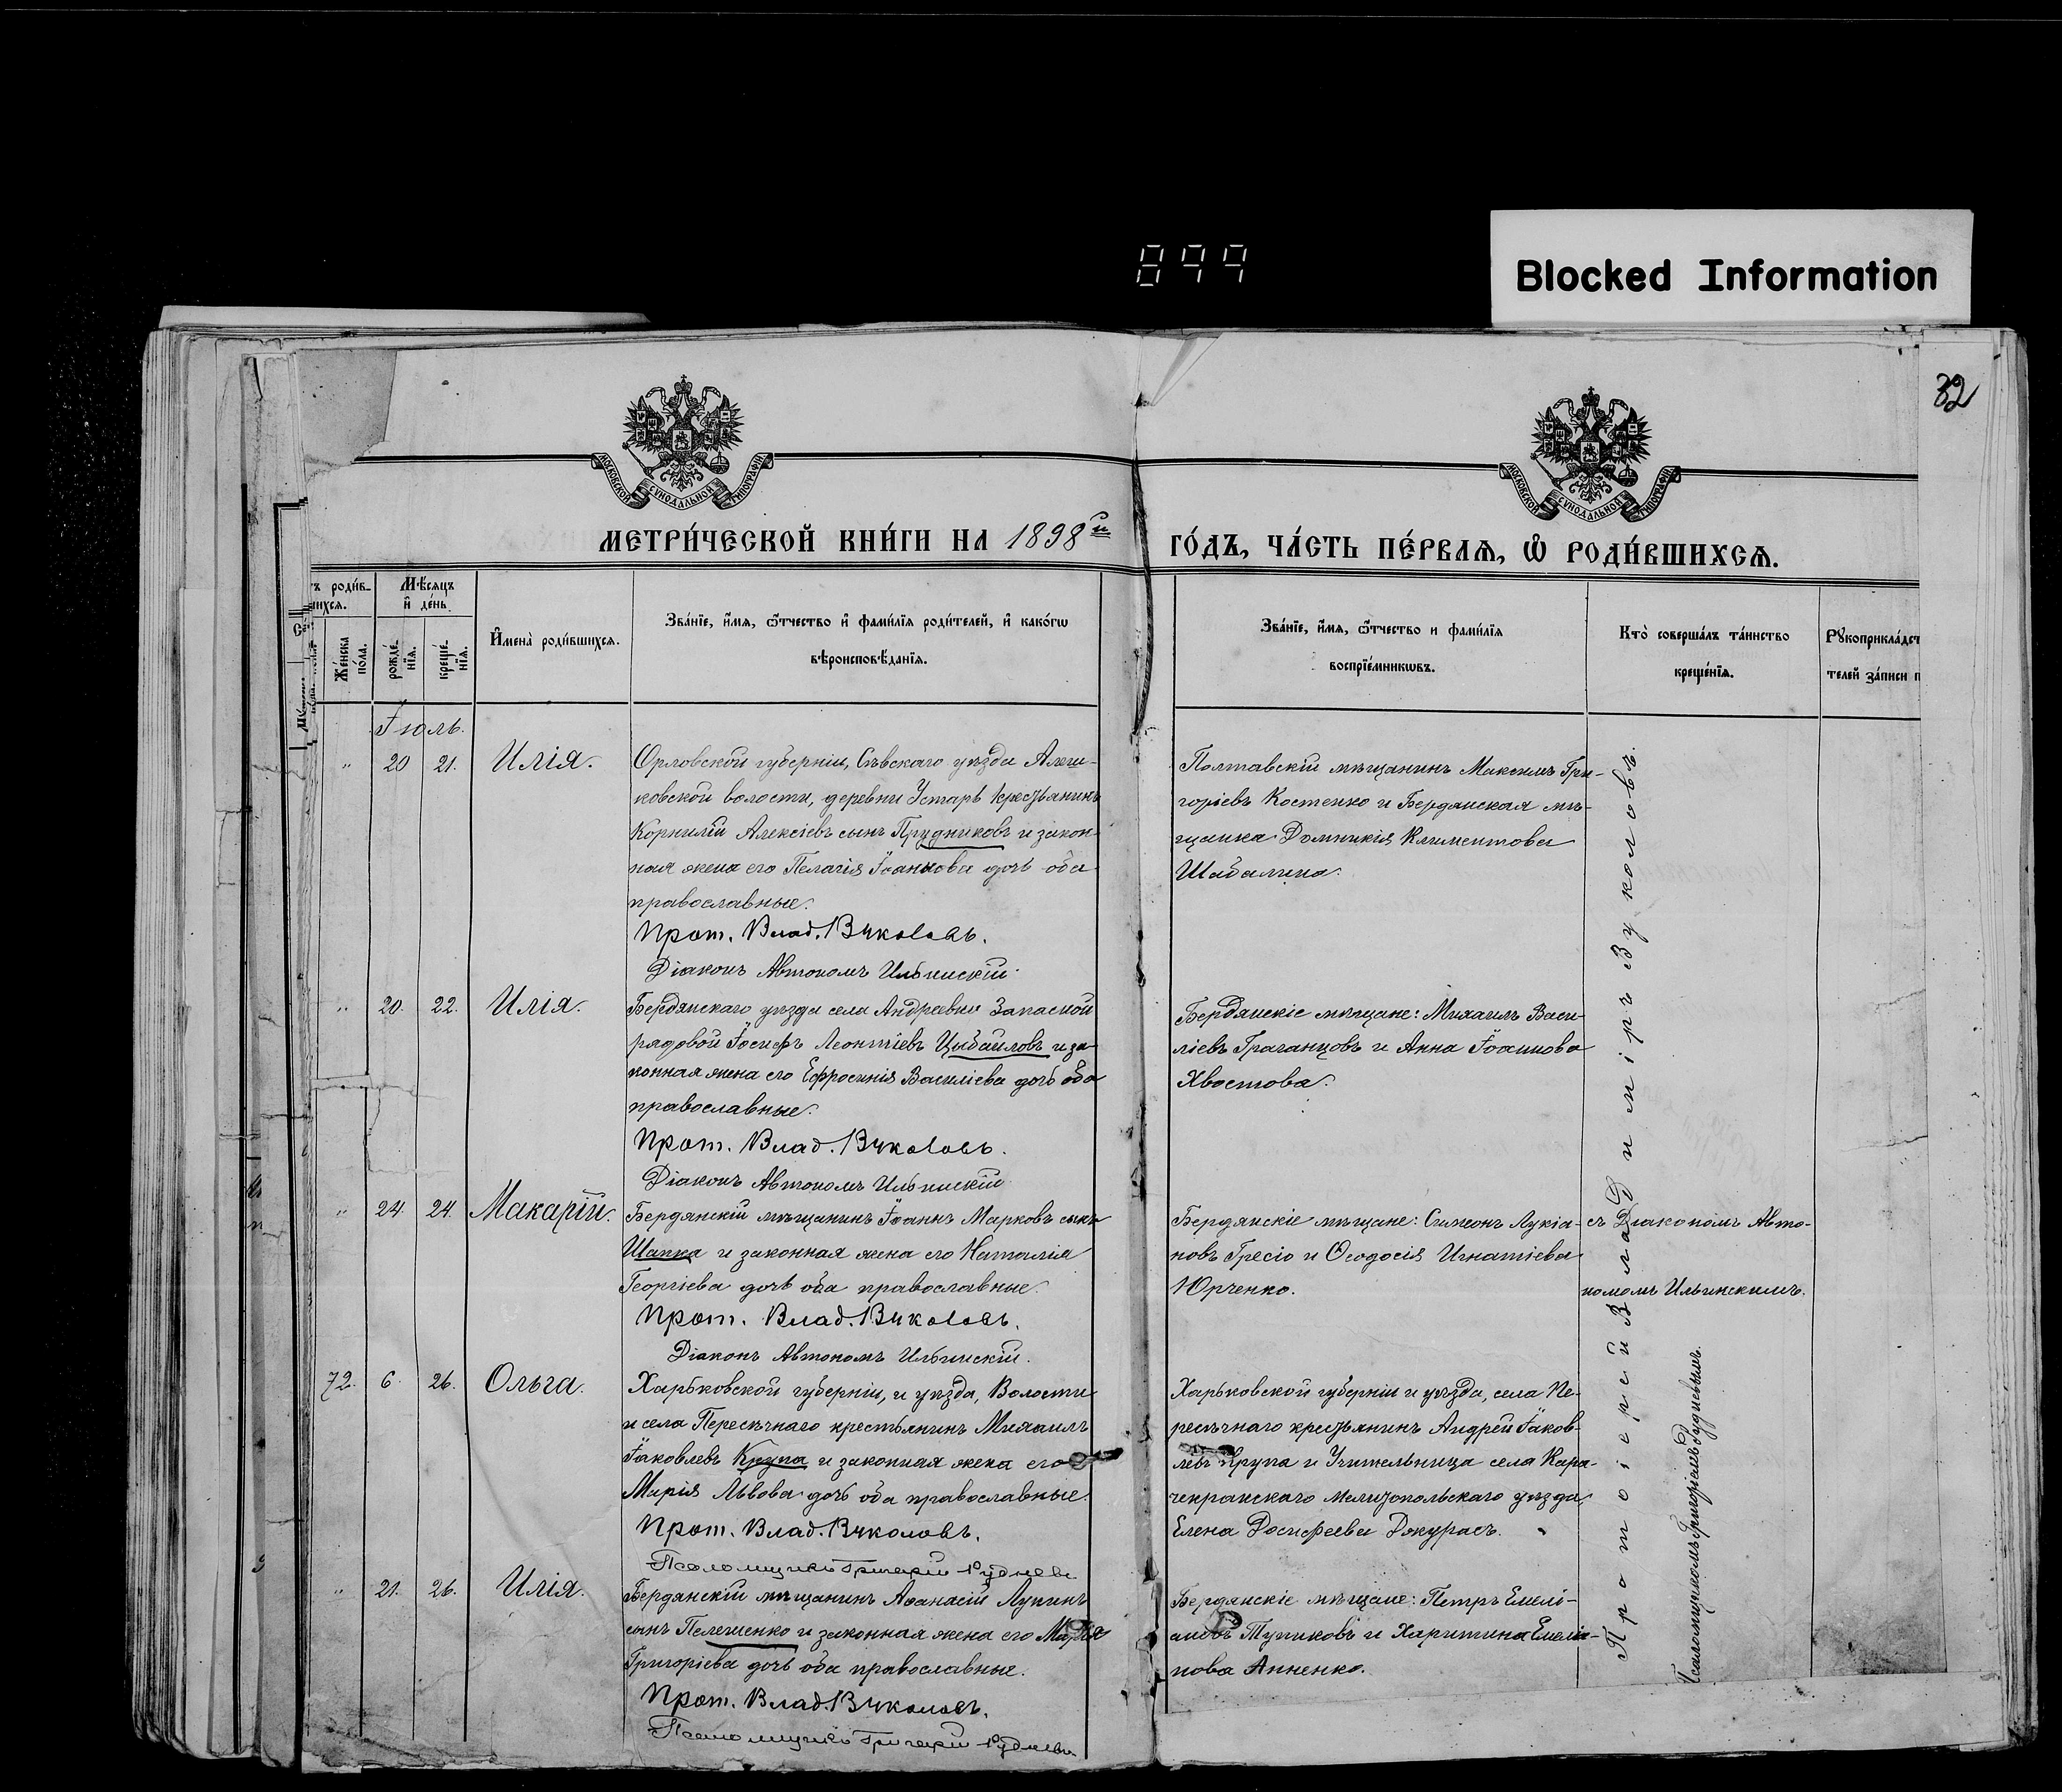 899
Blocked Information
32
МОСКОВСКОЙ СѴНОДАЛЬНОЙ ТИПОГРАФІИ
МОСКОВСКОЙ СѴНОДАЛЬНОЙ ТИПОГРАФІИ
МЕТРИ́ЧЕСКОЙ КНИ́ГИ НА 1898й
ГО́ДЪ, ЧА́СТЬ ПЕ́РВАѦ, Ѡ РОДИ́ВШИХСѦ.
ъ роди́в-
шихся.
Мѣ́сяцъ
и҆ де́нь.
Же́нска
по́ла.
рожде́-
нїя.
креще́-
нїя.
И҆мена̀ роди́вшихся.
Зва́нїе, и҆́мя, ѻ҆́тчество и҆ фами́лїя роди́телей, и҆ како́гѡ
вѣроисповѣ́данїя.
Зва́нїе, и҆́мя, ѻ҆́тчество и фами́лїя
воспрїе́мникѡвъ.
Кто̀ соверша́лъ та́инство
креще́нїя.
Рꙋкоприкла́дст
телей за́писи п
Іюль.
" 20 21. Илія.
Орловской губерніи, Сѣвскаго уѣзда Алеш-
ковской волости, деревни Устарь крестьянинъ
Корнилій Алексіевъ сынъ Прудниковъ и закон-
ная жена его Пелагія Іоаннова дочь оба
православные.
Прот. Влад. Вуколовъ.
Діаконъ Автономъ Ильинскій.
Полтавскій мѣщанинъ Максимъ Гри-
горіевъ Костенко и Бердянская мѣ-
щанка Домникія Климентова
Шабалина.
" 20. 22. Илія.
Бердянскаго уѣзда села Андреевки Запасной
рядовой Іосифъ Леонтіевъ Цыбаиловъ и за-
конная жена его Ефросинія Василіева дочь оба
православные.
Прот. Влад. Вуколовъ.
Діаконъ Автономъ Ильинскій
Бердянскіе мѣщане: Михаилъ Васи-
ліевъ Граганцовъ и Анна Іоаннова
Хвостова.
" 24. 24. Макарій.
Бердянскій мѣщанинъ Іоаннъ Марковъ сынъ
Шапка и законная жена его Наталія
Георгіева дочь оба православные.
Прот. Влад. Вуколовъ.
Діаконъ Автономъ Ильинскій.
Бердянскіе мѣщане: Симеонъ Лукіа-
новъ Гресіо и Ѳеодосія Игнатіева
Юрченко.
съ Діакономъ Авто-
номомъ Ильинскимъ.
72. 6. 26. Ольга.
Харьковской губерніи, и уѣзда, Волости
и села Пересѣчнаго крестьянинъ Михаилъ
Іаковлевъ Крупа и законная жена его
Марія Львова дочь оба православные.
Прот. Влад. Вуколовъ.
Псаломщикъ Григорій Рудневъ
Харьковской губерніи и уѣзда, села Пе-
ресѣчнаго крестьянинъ Андрей Іаков-
левъ Крупа и Учительница села Кара-
чекракскаго Мелитопольскаго уѣзда,
Елена Досифеева Джурасъ.
" 21. 26. Илія.
Бердянскій мѣщанинъ Аѳанасій Лукинъ
сынъ Пелешенко и законная жена его Марія
Григоріева дочь оба православные.
Прот. Влад. Вуколовъ.
Псаломщикъ Григорій Рудневъ
Бердянскіе мѣщане: Петръ Емелі-
ановъ Тупиковъ и Харитина Емелія-
нова Анненко.
Протоіерей Владиміръ Вуколовъ.
Псаломщикомъ Григоріемъ Рудневымъ.